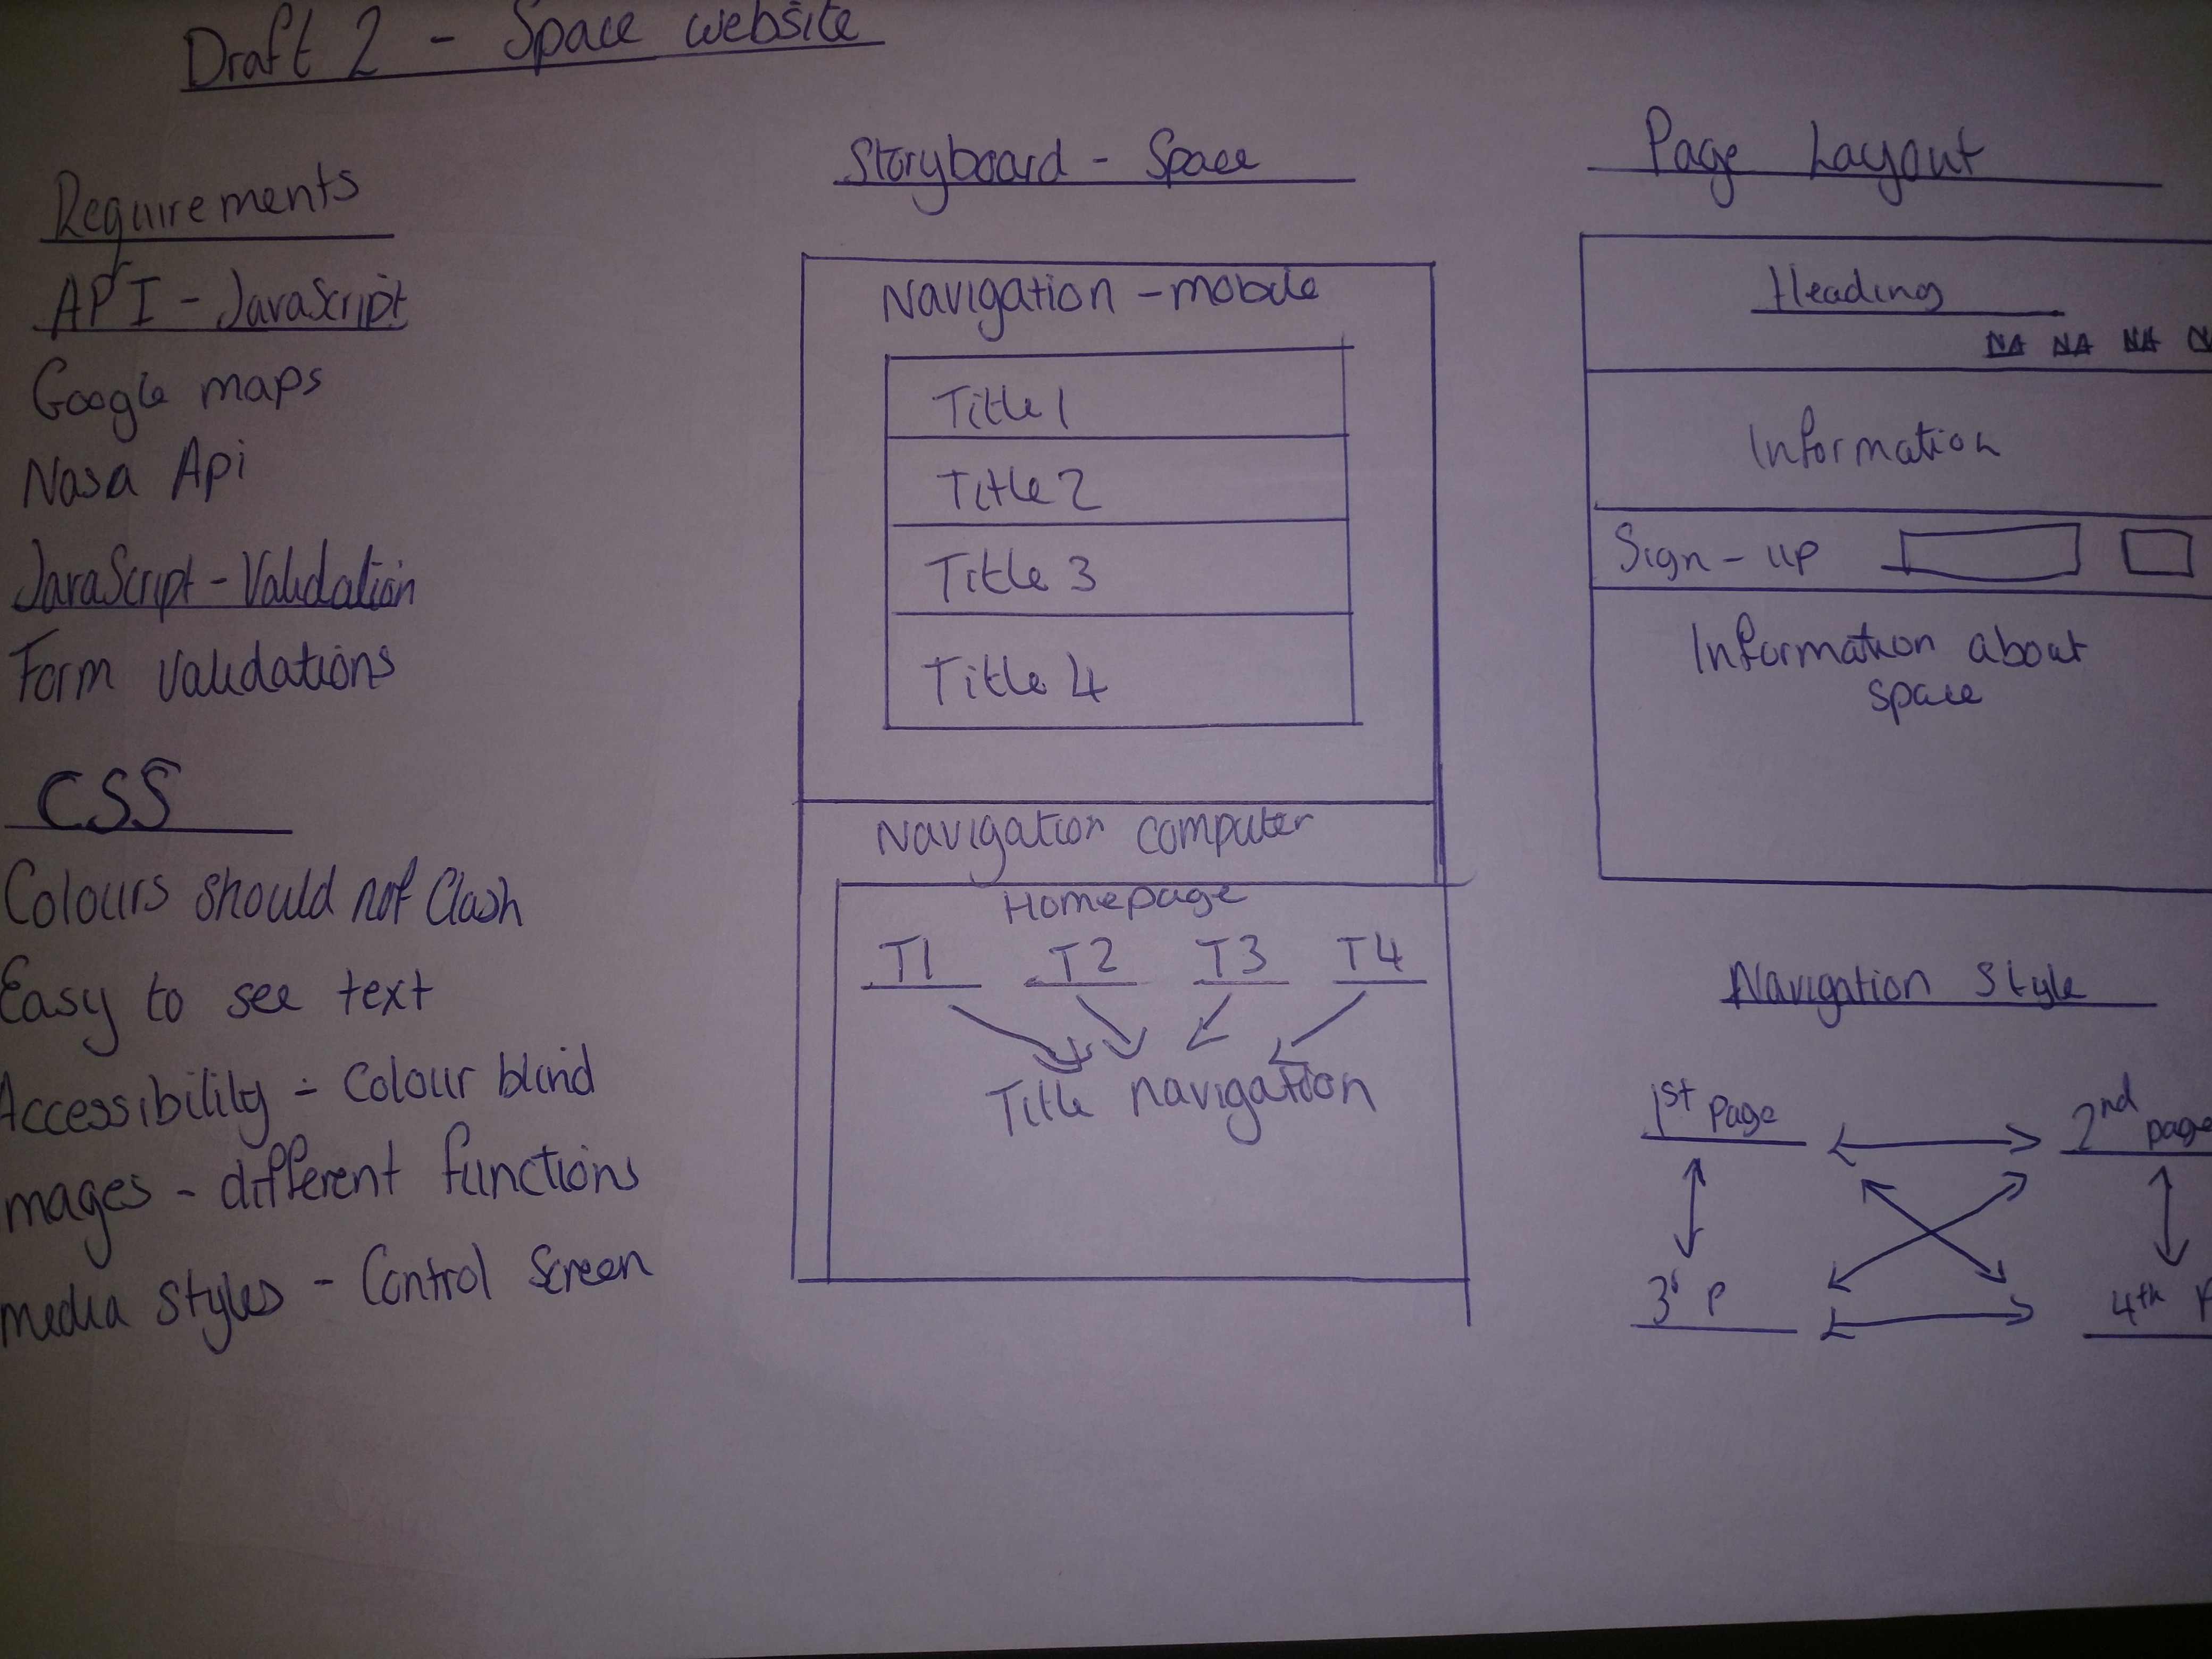 Draft 2 - Space website
Requirements
API - JavaScript
Google maps
Nasa Api
JavaScript - Validation
Form validations
CSS
Colours should not Clash
Easy to see text
Accessibility - Colour blind
mages - different functions
media styles - Control Screen
Storyboard - Space
Navigation - mobile
Title 1
Title 2
Title 3
Title 4
Navigation computer
Homepage
T1 T2 T3 T4
Title navigation
Page Layout
Heading
NA NA NA
Information
Sign-up
Information about
space
Navigation Style
1st Page 2nd page
3 P 4th P